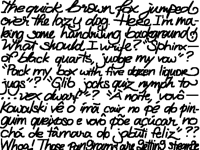 The quick brown fox jumped
over the lazy dog. Here I'm ma-
king some handwriting background
What should I write? "Sphinx
of black quarts, judge my vow"?
"Pack my box with five dozen liquor
jugs"? "Glib jocks quiz nymph to
vex dwarf"? "À noite, vovô
Kowalski vê o ímã cair no pé do pin-
guim queixoso e vovó põe açúcar no
chá de tâmaras do jabuti feliz"??
Whoa! Those pangrams are getting strange